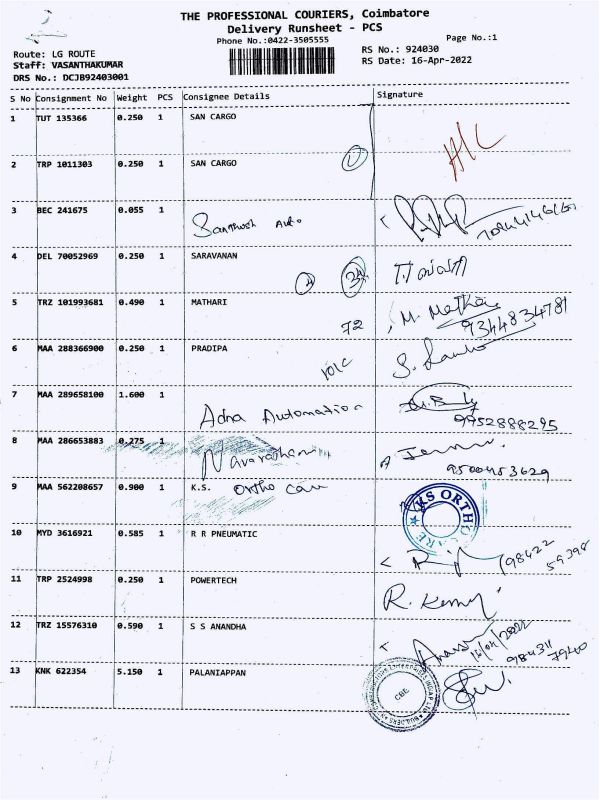 THE PROFESSIONAL COURIERS, Coimbatore
Delivery Runsheet - PCS
Phone No.:0422-3505555
Page No.:1
Route: LG ROUTE
RS No.: 924030
Staff: VASANTHAKUMAR
RS Date: 16-Apr-2022
DRS No.: DCJB92403001
S No Consignment No Weight PCS Consignee Details Signature
1 TUT 135366 0.250 1 SAN CARGO
2 TRP 1011303 0.250 1 SAN CARGO
3 BEC 241675 0.055 1 Santhosh Auto
4 DEL 70052969 0.250 1 SARAVANAN
5 TRZ 101993681 0.490 1 MATHARI 72 M. Mathari
9344834781
6 MAA 288366900 0.250 1 PRADIPA
7 MAA 289658100 1.600 1 Adna Automation
9952888295
8 MAA 286653883 0.275 1
9500453629
9 MAA 562208657 0.900 1 K.S. Ortho Care KS ORTHO CARE
10 MYD 3616921 0.585 1 R R PNEUMATIC 98422
59398
11 TRP 2524998 0.250 1 POWERTECH
12 TRZ 15576310 0.590 1 S S ANANDHA 16/04/2022
984311
7940
13 KNK 622354 5.150 1 PALANIAPPAN CBE